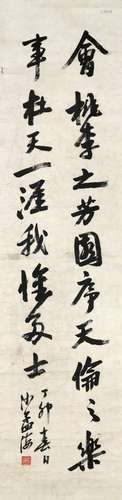 會桃李之芳園序天倫之樂
事杜天一涯我多士
丁卯春日
沙孟海